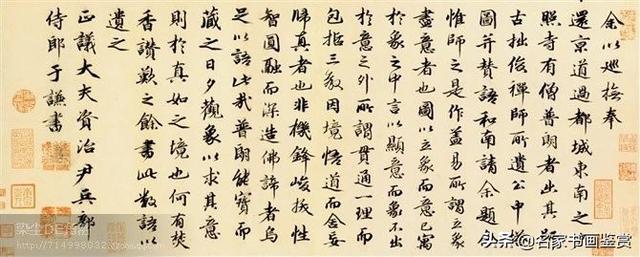 余以巡撫奉
還京道過都城東南之
照寺有僧普朗者出其師
古拙俊禪師所遺公中塔
圖并贊語和南請余題
惟師之是作蓋易所謂立象
盡意者也圖以立象而意已寓
於象之中言以顯意而象不出
於意之外所謂貫通一理而
包括三教因境悟道而舍妄
歸真者也非機鋒峻拔性
智圓融而深造佛諦者烏
足以語此哉普朗能寶而
藏之日夕觀象以求其意
則於真如之境也何有焚
香讚歎之餘書此數語以
遺之
正議大夫資治尹兵部
侍郎于謙書
头条@名家书画鉴赏